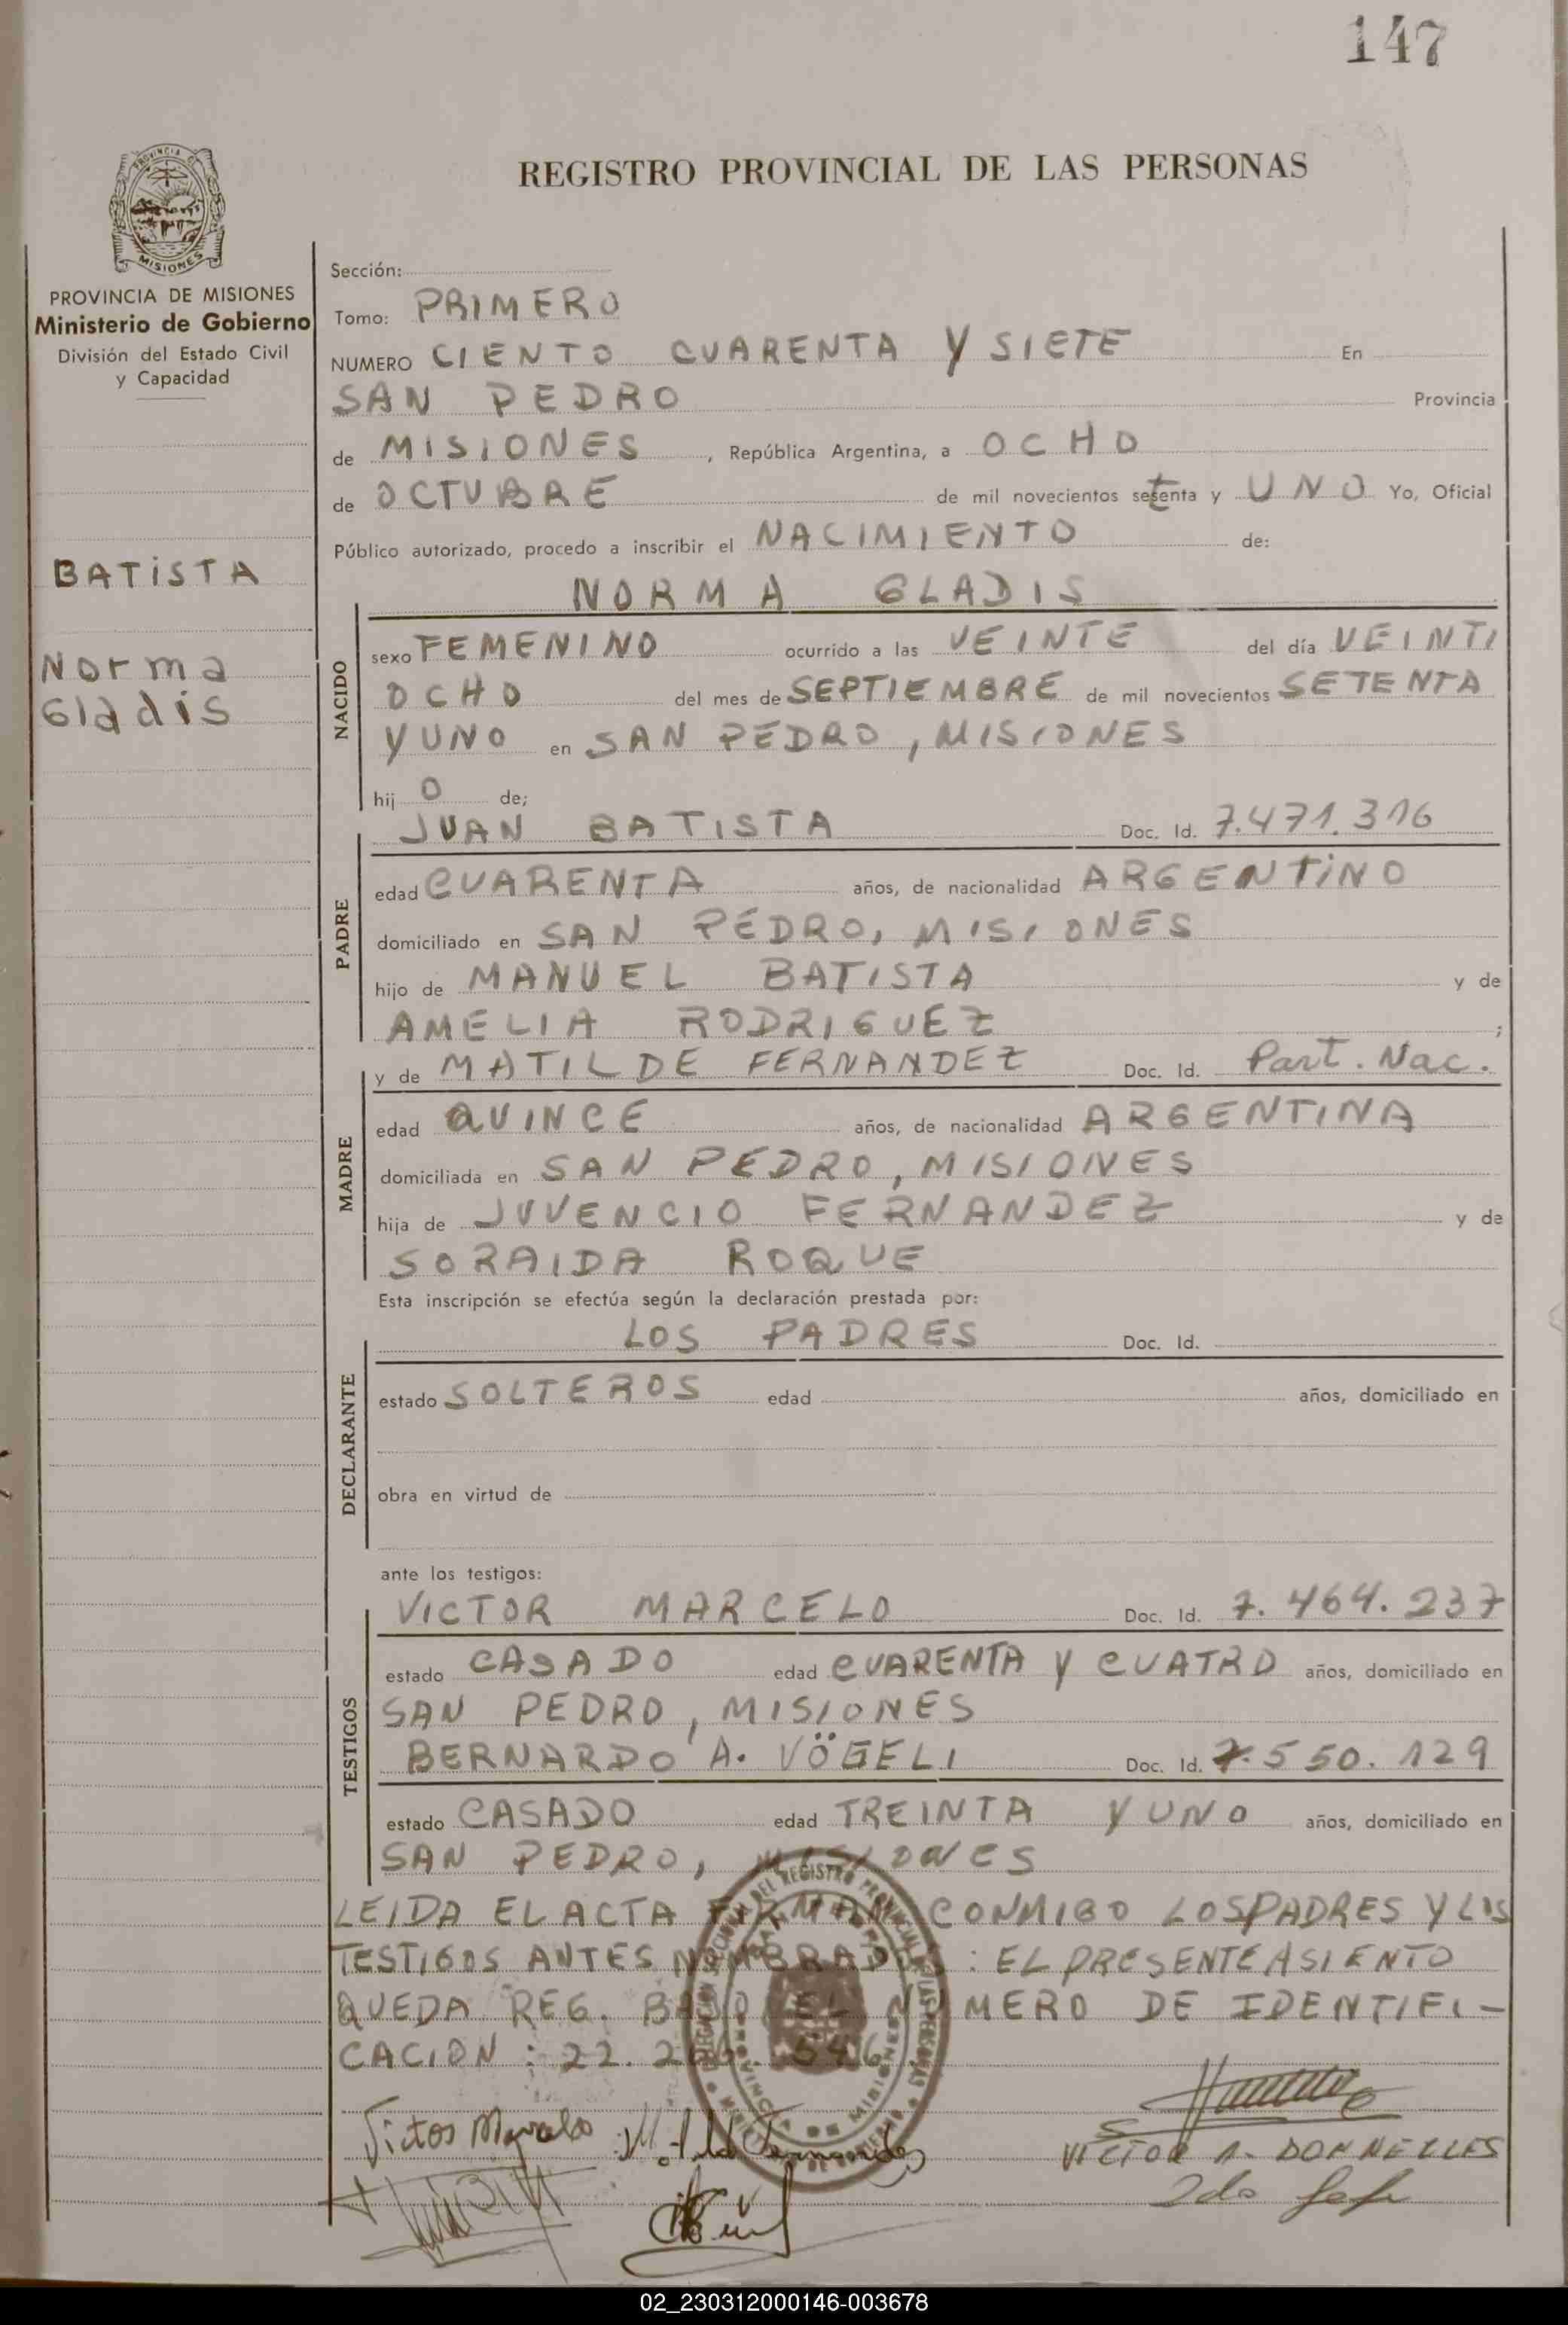 147
REGISTRO PROVINCIAL DE LAS PERSONAS
PROVINCIA DE MISIONES
Ministerio de Gobierno
División del Estado Civil
y Capacidad
BATISTA
Norma
Gladis
Sección:
Tomo: PRIMERO
NUMERO CIENTO CUARENTA Y SIETE En
SAN PEDRO Provincia
de MISIONES, República Argentina, a OCHO
de OCTUBRE de mil novecientos setenta y UNO Yo, Oficial
Público autorizado, procedo a inscribir el NACIMIENTO de:
NORMA GLADIS
NACIDO
sexo FEMENINO ocurrido a las VEINTE del día VEINTI
OCHO del mes de SEPTIEMBRE de mil novecientos SETENTA
Y UNO en SAN PEDRO, MISIONES
hij O de;
JUAN BATISTA Doc. Id. 7.471.316
PADRE
edad CUARENTA años, de nacionalidad ARGENTINO
domiciliado en SAN PEDRO, MISIONES
hijo de MANUEL BATISTA y de
AMELIA RODRIGUEZ ;
y de MATILDE FERNANDEZ Doc. Id. Part. Nac.
MADRE
edad QUINCE años, de nacionalidad ARGENTINA
domiciliada en SAN PEDRO, MISIONES
hija de JUVENCIO FERNANDEZ y de
SORAIDA ROQUE
Esta inscripción se efectúa según la declaración prestada por:
LOS PADRES Doc. Id.
DECLARANTE
estado SOLTEROS edad años, domiciliado en
obra en virtud de
ante los testigos:
VICTOR MARCELO Doc. Id. 7.464.237
TESTIGOS
estado CASADO edad CUARENTA Y CUATRO años, domiciliado en
SAN PEDRO, MISIONES
BERNARDO A. VÖGELI Doc. Id. 7.550.129
estado CASADO edad TREINTA Y UNO años, domiciliado en
SAN PEDRO, MISIONES
LEIDA EL ACTA FIRMAN CONMIGO LOS PADRES Y LOS
TESTIGOS ANTES NOMBRADOS: EL PRESENTE ASIENTO
QUEDA REG. BAJO EL NUMERO DE IDENTIFI-
CACION: 22.
VICTOR A. DORNELLES
2do Jefe
02_230312000146-003678